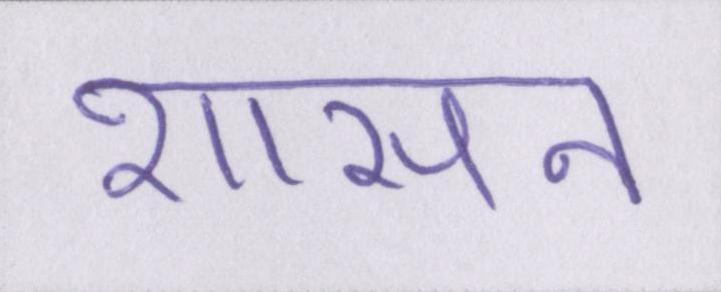 शासन